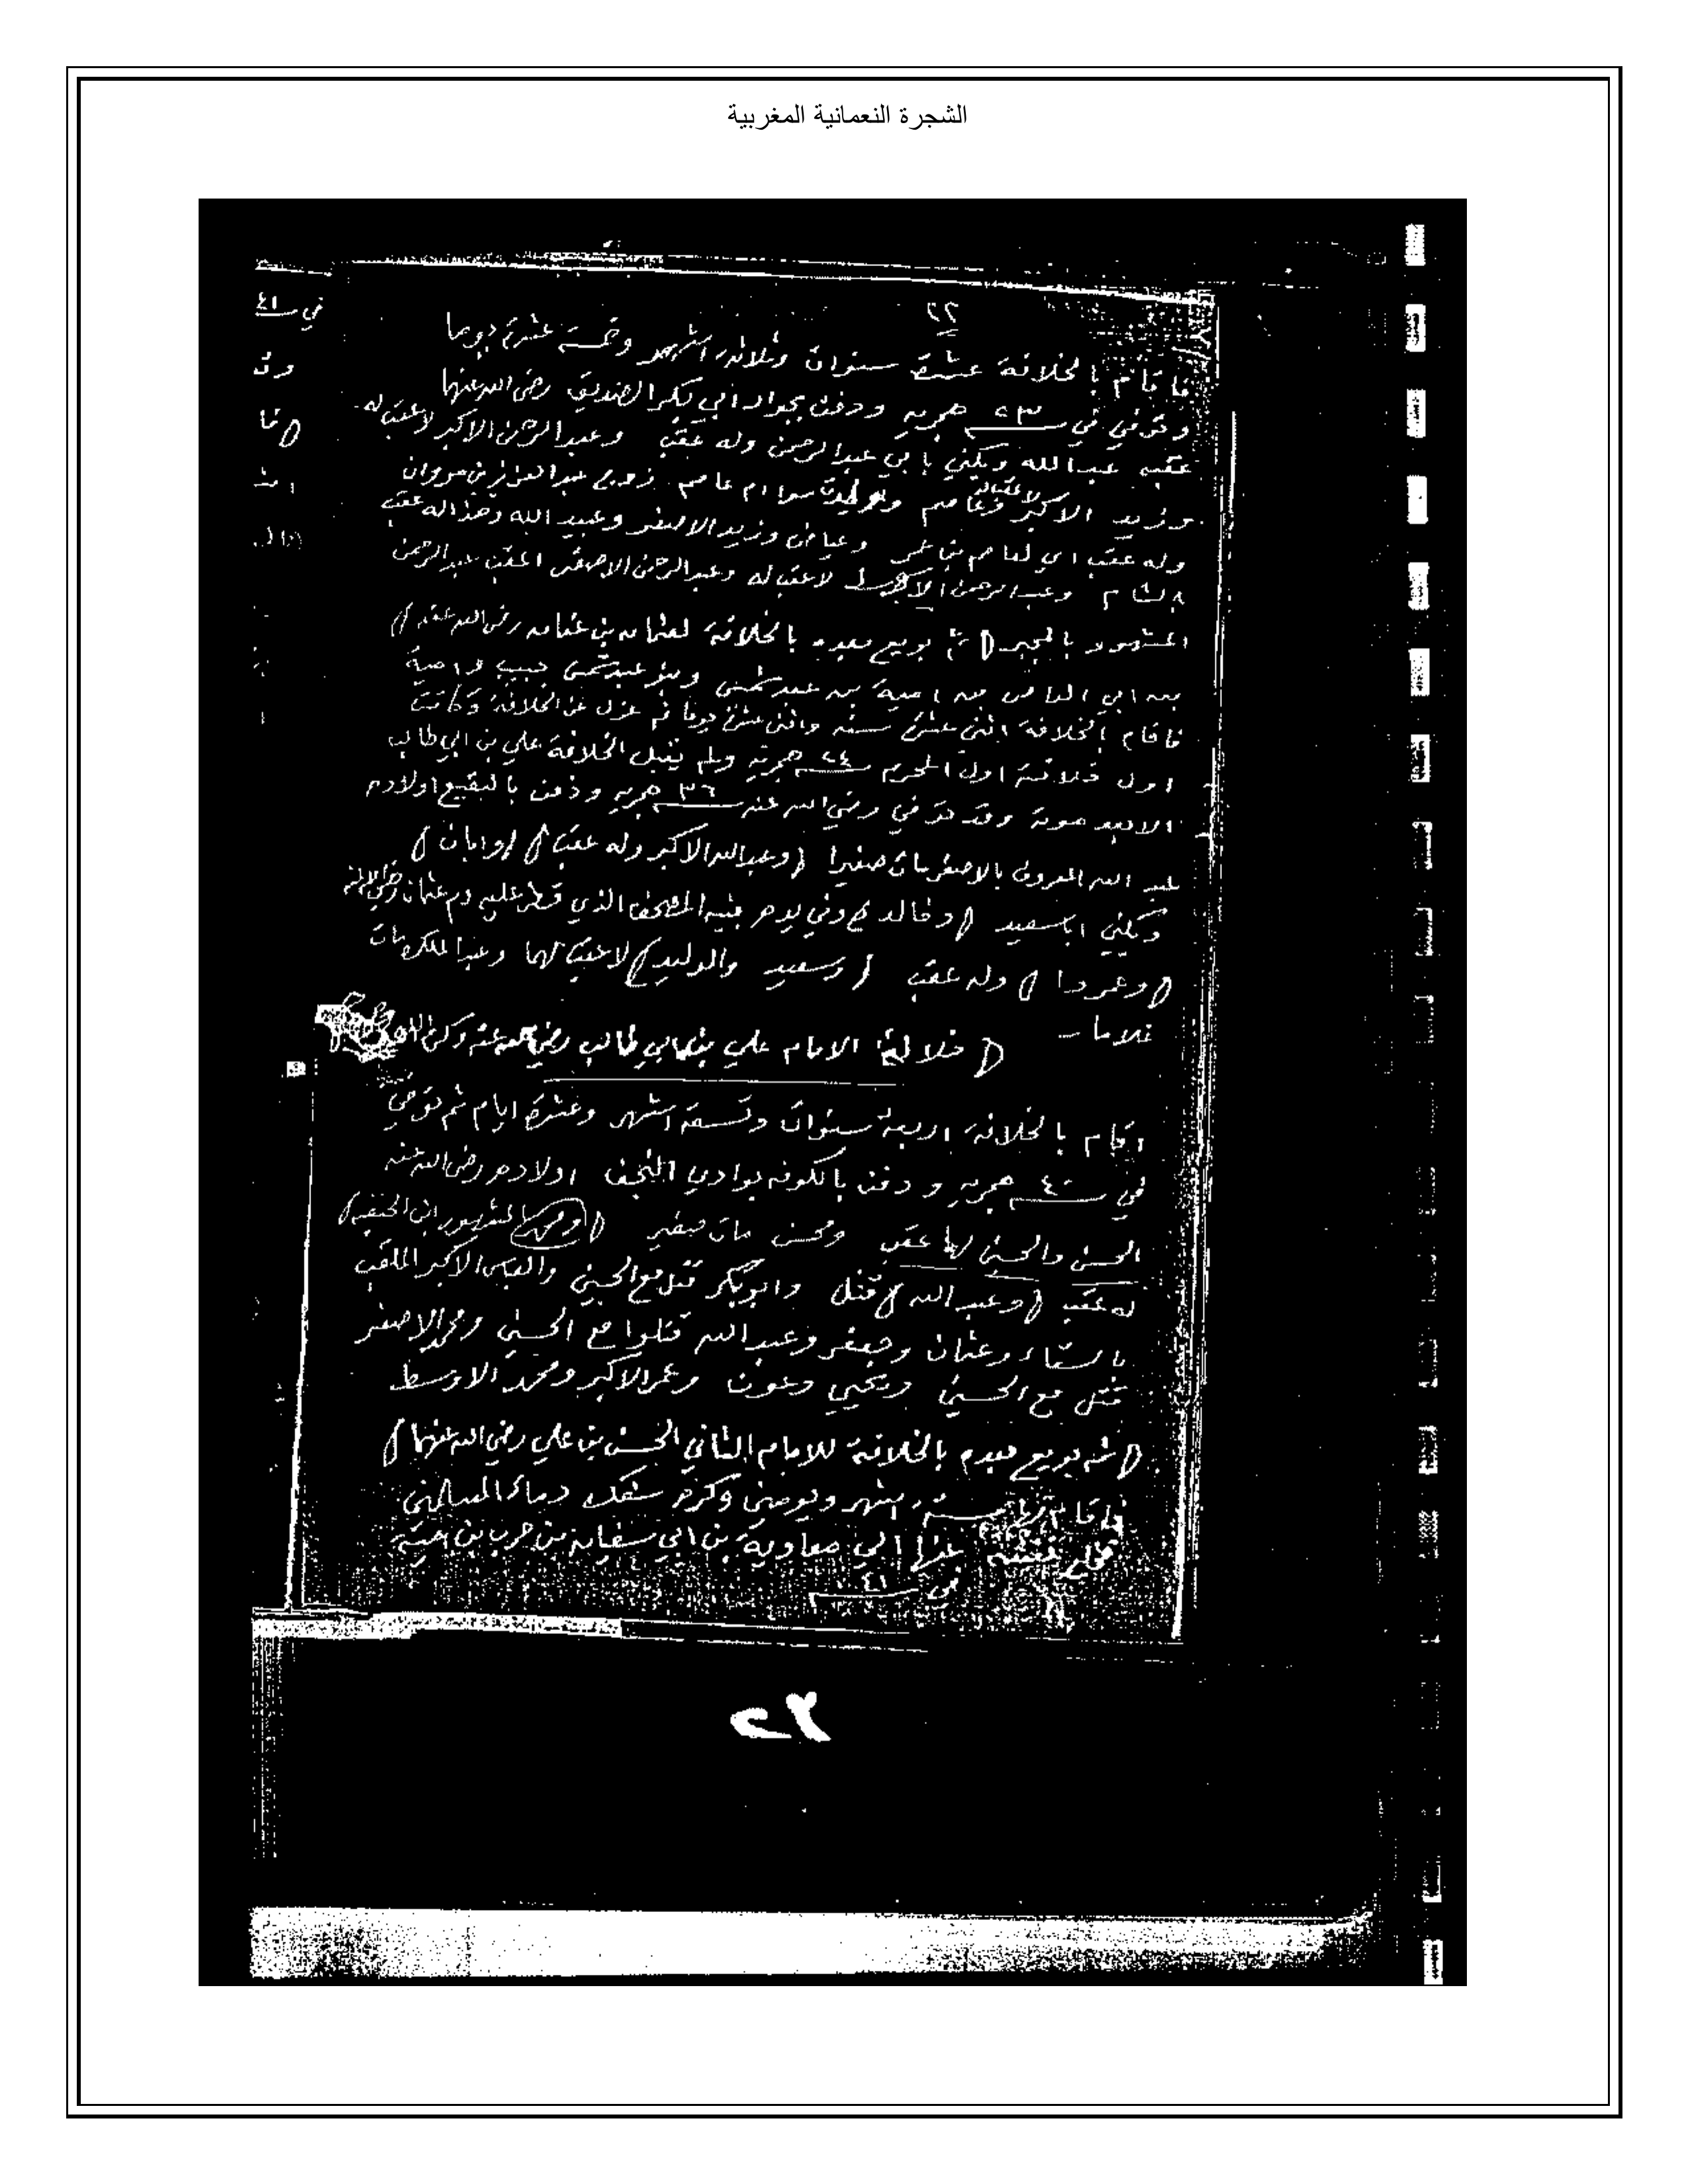 الشجرة النعمانية المغربية
٢٢
فاقام بالخلافة عشرة سنوات وثلاثة اشهر وخمسة عشرة يوما
وتوفي في سنة ٢٣ هجريه ودفن بجوار ابي بكر الصديق رضي الله عنها
عقبه عبد الله ويكني بابي عبد الرحمن وله عقب وعبد الرحمن الاكبر لا عقب له
وزيد الاكبر لا عقب له وعاصم ام عاصم زوج عبد العزيز بن مروان
وله عقب اي لعاصم بن عمر وعياض وزيد الاصغر وعبيد الله وهذا له عقب
بالشام وعبد الرحمن لا عقب له وعبد الرحمن الاصغر المعقب عبد الرحمن
المشهور بالمجبر ( ثم بويع بعده بالخلافة لعثمان بن عفان رضي الله عنه )
بن ابي العاص بن امية بن عبد شمس وبنو عبد شمس
فاقام بالخلافة اثني عشرة سنه واثني عشرة يوما ثم عزل عن الخلافة وكانت
اول خلافته اول المحرم سنة ٢٤ هجرية ولم يقبل الخلافة علي بن ابي طالب
الا بعد موته وقد توفي رضي الله عنه سنة ٣٦ هجريه ودفن بالبقيع اولاده
عبد الله المعروف بالاصغر مات صغيرا ( وعبد الله الاكبر وله عقب ) ( وابان )
ويكني ابا سعيد ( وخالد ) وفي يده المصحف الذي قطر عليه دم عثمان رضي الله عنه
( وعمروا ) وله عقب ( وسعيد والوليد ) لا عقب لهما وعبد الملك مات
غلاما -
( خلافة الامام علي بن ابي طالب رضي الله عنه
اقام بالخلافة اربعة سنوات وتسعة اشهر وعشرة ايام ثم توفي
في سنة ٤٠ هجريه ودفن بالكوفه بوادي النجف اولاده رضي الله عنه
الحسن والحسين لهما عقب ومحسن مات صغير ( ومحمد المشهور ابن الحنفيه )
له عقب ( وعبد الله ) قتل وابو بكر قتل مع الحسين والعباس الاكبر الملقب
بالسقاء وعثمان وجعفر وعبد الله قتلوا مع الحسين ومحمد الاصغر
قتل مع الحسين ويحيي وعون وعمر الاكبر ومحمد الاوسط
( ثم بويع بعده بالخلافة للامام الثاني الحسن بن علي رضي الله عنهما )
فاقام ستة اشهر ويومين وكره سفك دماء المسلمين
فخلع نفسه عنها الي معاوية بن ابي سفيان بن حرب بن امية
في سنة ٤١
في سنة ٤١
٢٢